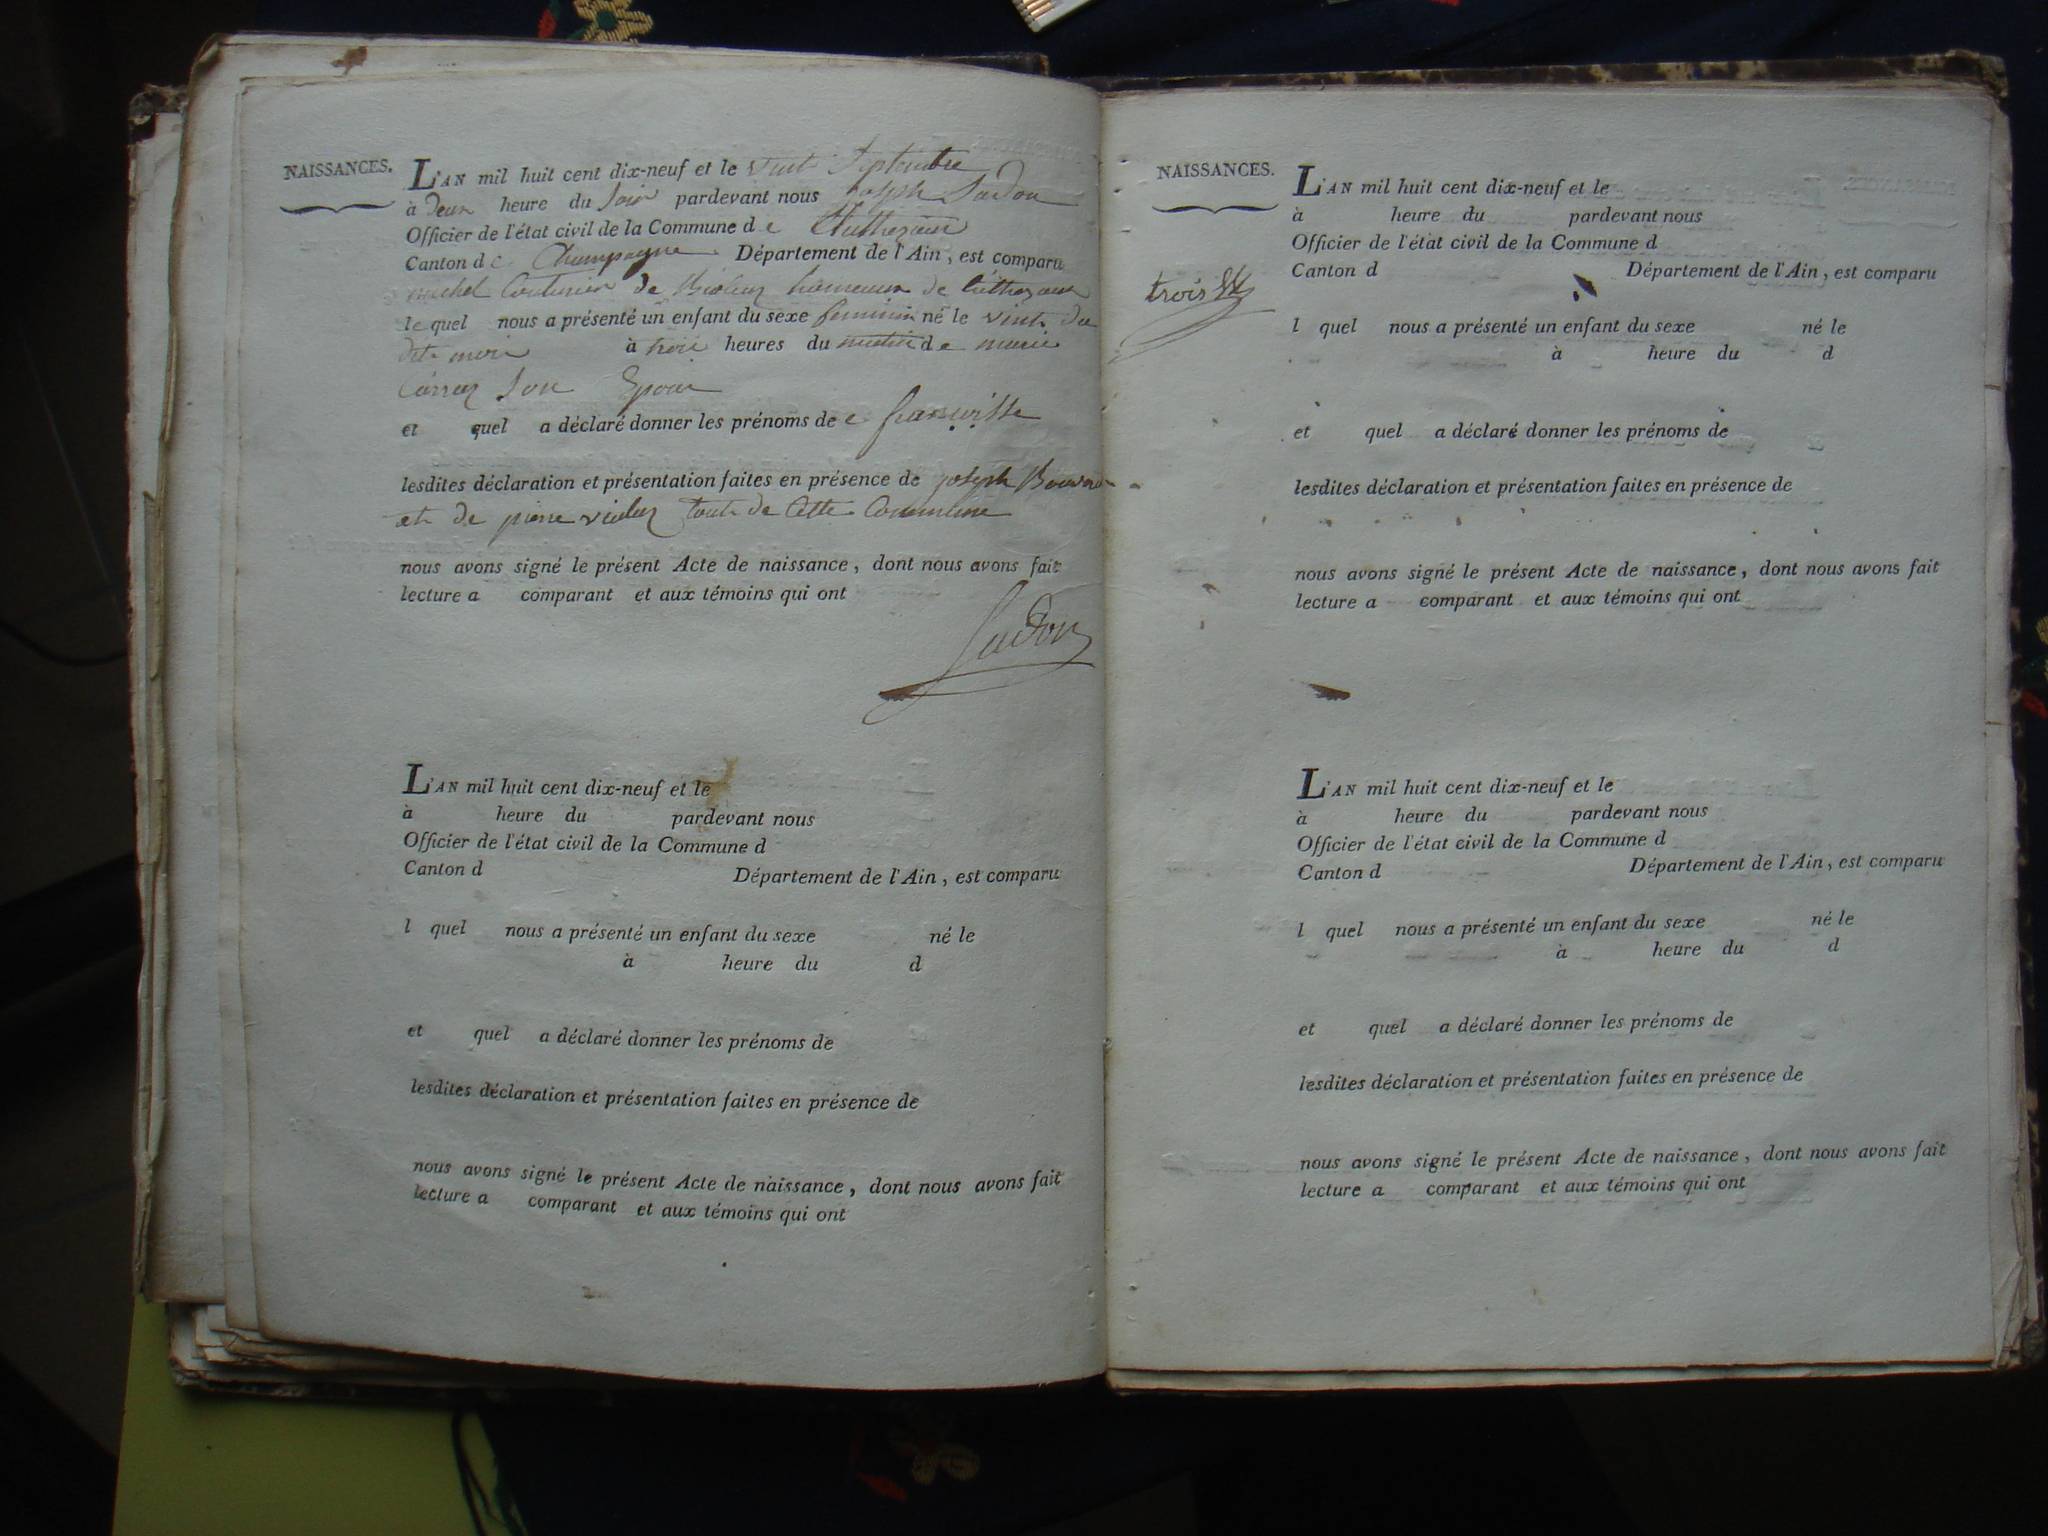 NAISSANCES.
L'AN mil huit cent dix-neuf et le vint Septembre
à deux heure du Soir pardevant nous joseph Sudon
Officier de l'état civil de la Commune de
Canton de Champagne Département de l'Ain, est comparu
michel Couturier de hameaux de
lequel nous a présenté un enfant du sexe feminin né le vint du
dit moi à troi heures du matin de marie
Son Epouse
et quel a déclaré donner les prénoms de
lesdites déclaration et présentation faites en présence de joseph
et de pierre tout de Cette Commune
nous avons signé le présent Acte de naissance, dont nous avons fait
lecture a comparant et aux témoins qui ont
Sudon
L'AN mil huit cent dix-neuf et le
à heure du pardevant nous
Officier de l'état civil de la Commune d
Canton d Département de l'Ain, est comparu
l quel nous a présenté un enfant du sexe né le
à heure du d
et quel a déclaré donner les prénoms de
lesdites déclaration et présentation faites en présence de
nous avons signé le présent Acte de naissance, dont nous avons fait
lecture a comparant et aux témoins qui ont
NAISSANCES.
trois
L'AN mil huit cent dix-neuf et le
à heure du pardevant nous
Officier de l'état civil de la Commune d
Canton d Département de l'Ain, est comparu
l quel nous a présenté un enfant du sexe né le
à heure du d
et quel a déclaré donner les prénoms de
lesdites déclaration et présentation faites en présence de
nous avons signé le présent Acte de naissance, dont nous avons fait
lecture a comparant et aux témoins qui ont
L'AN mil huit cent dix-neuf et le
à heure du pardevant nous
Officier de l'état civil de la Commune d
Canton d Département de l'Ain, est comparu
l quel nous a présenté un enfant du sexe né le
à heure du d
et quel a déclaré donner les prénoms de
lesdites déclaration et présentation faites en présence de
nous avons signé le présent Acte de naissance, dont nous avons fait
lecture a comparant et aux témoins qui ont